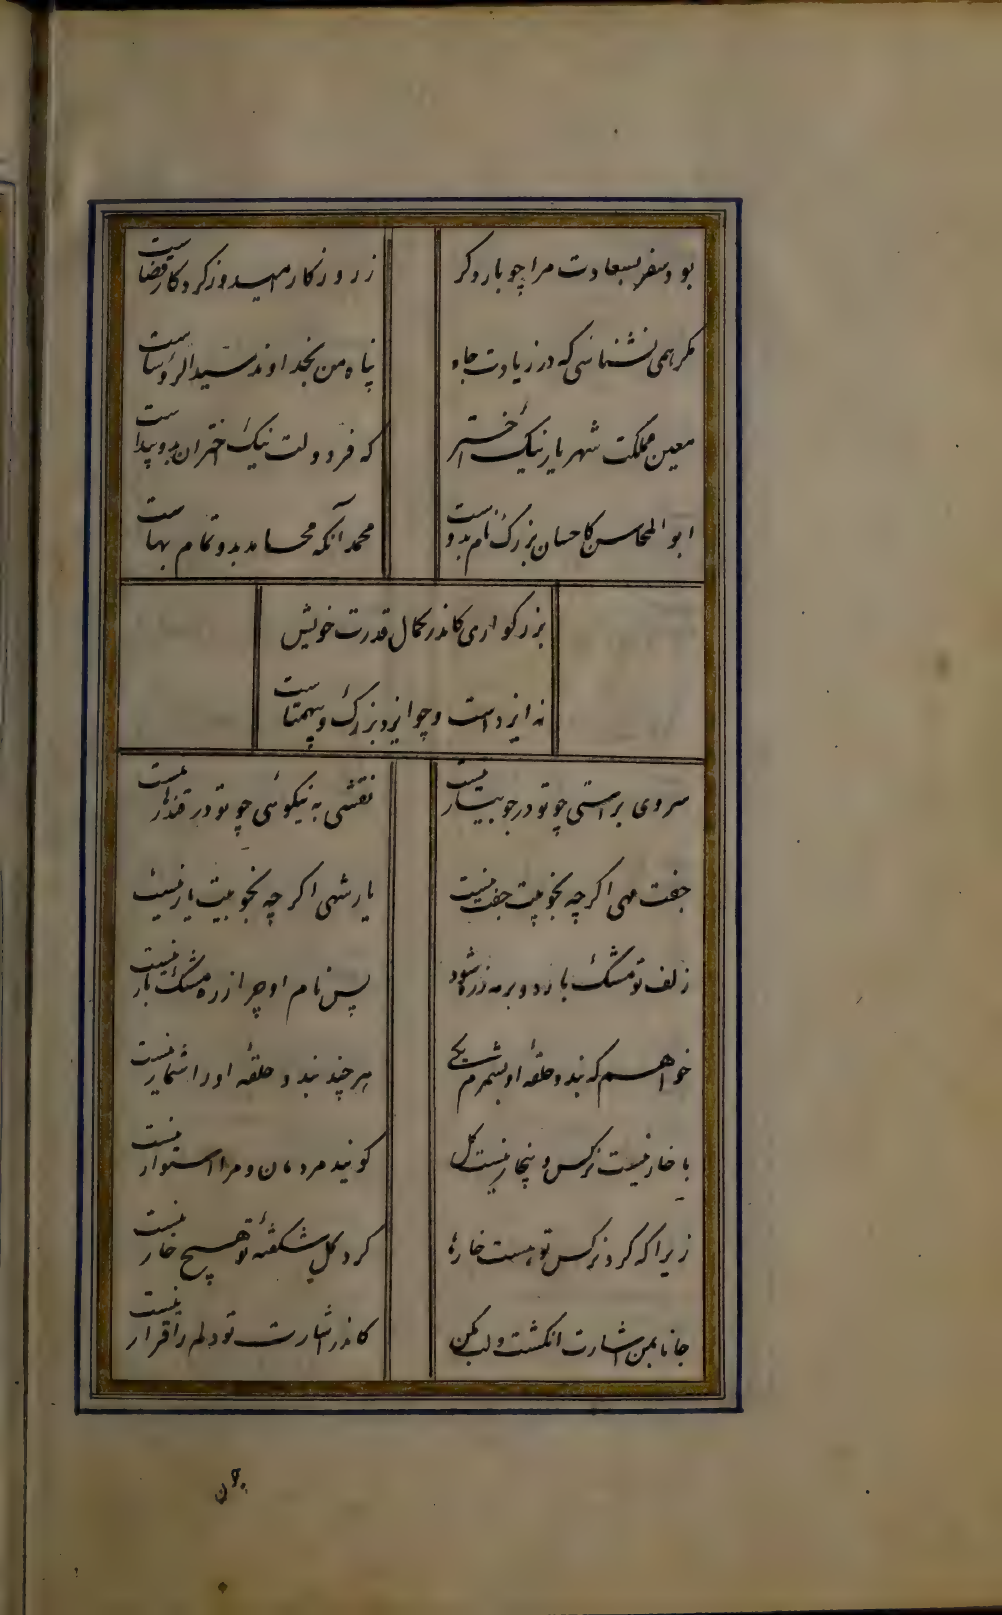 بود سفر بسعادت مرا چو بار دگر
ز روزگار امید و ز کردگار قضاست
مگر همی نشناسی که در زیادت جاه
پناه من بخداوند سیدالرؤساست
معین مملکت شهریار نیک اختر
که فر دولت نیک اختران بدو پیداست
ابوالمحاسن کاحسان بزرگ نام بدوست
محمد آنکه محامد بدو تمام بهاست
بزرگواری کاندر کمال قدرت خویش
نه ایزداست و چو ایزد بزرگ و بیهمتاست
سروی براستی چو تو در جویبار نیست
نقشی به نیکوئی چو تو در قندهار نیست
جفت مهی اگر چه بخوبیت جفت نیست
یار شهی اگر چه بخوبیت یار نیست
زلف تو مشک بارد و بر مه زره شود
پس نام او چرا زره مشک بار نیست
خواهم که بند و حلقه او بشمرم یکی
هر چند بند و حلقه او را شمار نیست
با خار نیست نرگس و بیخار نیست گل
گویند مردمان و مرا استوار نیست
زیرا که گرد نرگس تو هست خارها
گرد گل شکفته تو هیچ خار نیست
جانا بمن اشارت انگشت و لب مکن
کاندر اشارت تو دلم را قرار نیست
چون